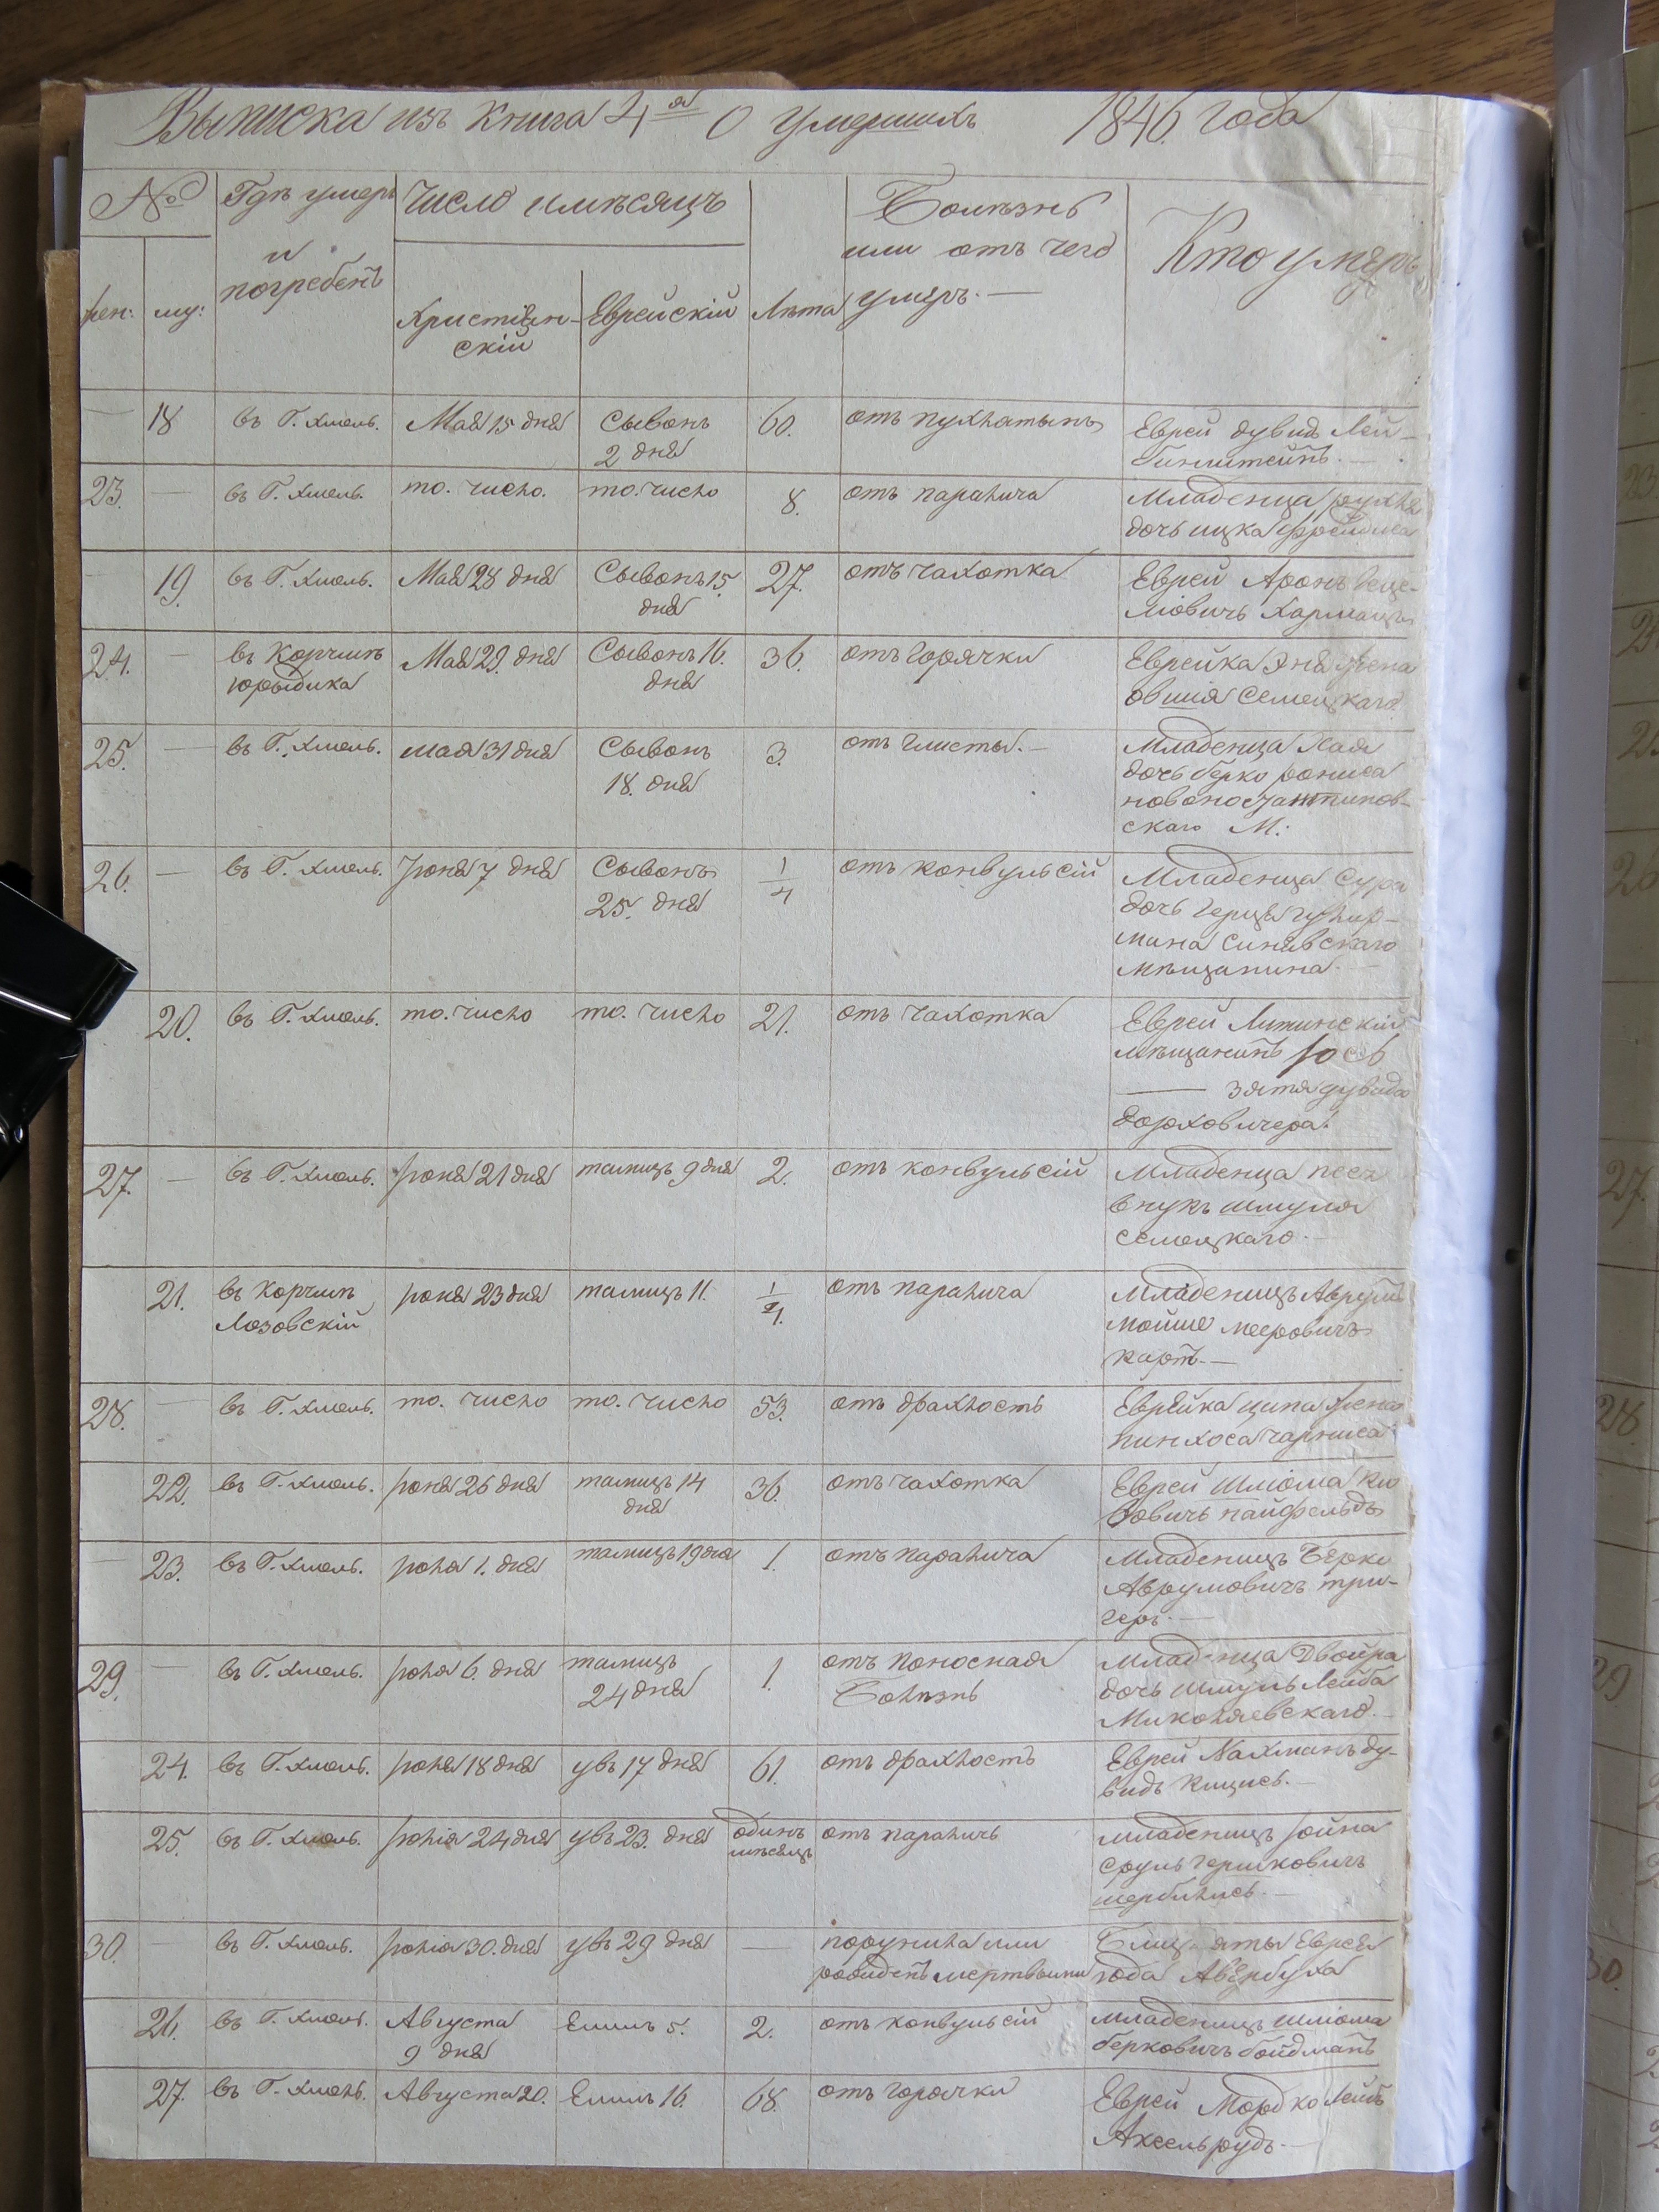 Выписка изъ книга 4я О умершихъ 1846 года
№
Гдѣ умеръ и погребенъ
Число и мѣсяцъ
Болѣзнь или отъ чего умеръ. —
Кто умеръ
жен: му: Христіан- скій Еврейскій Лѣта
— 18 въ Г. Хмель. Мая 15 дня Сывонъ 2 дня 60. отъ Еврей дувидъ Лей-
23. — въ Г. Хмель. то. число. то. число 8. отъ паралича Младенца
дочь ицка
— 19. въ Г. Хмель. Мая 28 дня Сывонъ 15. дня 27. отъ чахотка Еврей Аронъ
24. — въ Корчмѣ юрыдика Мая 29. дня Сывонъ 16. дня 36. отъ горячки Еврейка жена
овшія Семецкаго
25. — въ Г. Хмель. мая 31 дня Сывонъ 18. дня 3. отъ глисты. — Младенца Хая
дочь берко
скаго М:
26. — въ Г. Хмель. Іюня 7 дня Сывонъ 25. дня 1/4 отъ конвульсій Младенца Сура
дочь герца
мана Синявскаго
мѣщанина. —
20. въ Г. Хмель. то. число то. число 21. отъ чахотка Еврей Литинскій
мѣщанинъ Іось
— зятя дувида
27. — въ Г. Хмель. Іюня 21 дня тамицъ 9 дня 2. отъ конвульсій Младенца песя
внукъ шмуля
семецкаго. —
21. въ Корчмѣ Лозовскій Іюня 23 дня тамицъ 11. 1/4. отъ паралича Младеницъ Аврумъ
мойше мееровичъ
28. — въ Г. Хмель. то. число то. число 53. отъ драхлость Еврейка ципа жена
пинхоса чарниса
22. въ Г. Хмель. Іюня 26 дня тамицъ 14 дня 36. отъ чахотка Еврей Шліома
— 23. въ Г. Хмель. Іюля 1. дня тамицъ 19 дня 1. отъ паралича Младеницъ Берко
Аврумовичъ три-
геръ. —
29. — въ Г. Хмель. Іюля 6. дня тамицъ 24 дня 1. отъ поносная Болѣзнь Младенца Двойра
дочь шмуль Лейба
Миколяевскаго. —
24. въ Г. Хмель. Іюля 18 дня увъ 17 дня 61. отъ драхлость Еврей Нахманъ ду-
видъ
25. въ Г. Хмель. Іюлія 24 дня увъ 23. дня одинъ мѣсяцъ отъ параличъ Младеницъ Іойна
сруль гершковичъ
30. — въ Г. Хмель. Іюлія 30. дня увъ 29 дня — или мертвыми Еврея
Авербуха
26. въ Г. Хмель. Августа 9 дня Елилъ 5. 2. отъ конвульсій Младеницъ Шліома
берковичъ бойдманъ
27. въ Г. Хмель. Августа 20. Елилъ 16. 68. отъ горячки Еврей Мордко Лейбъ
Аксельрудъ. —